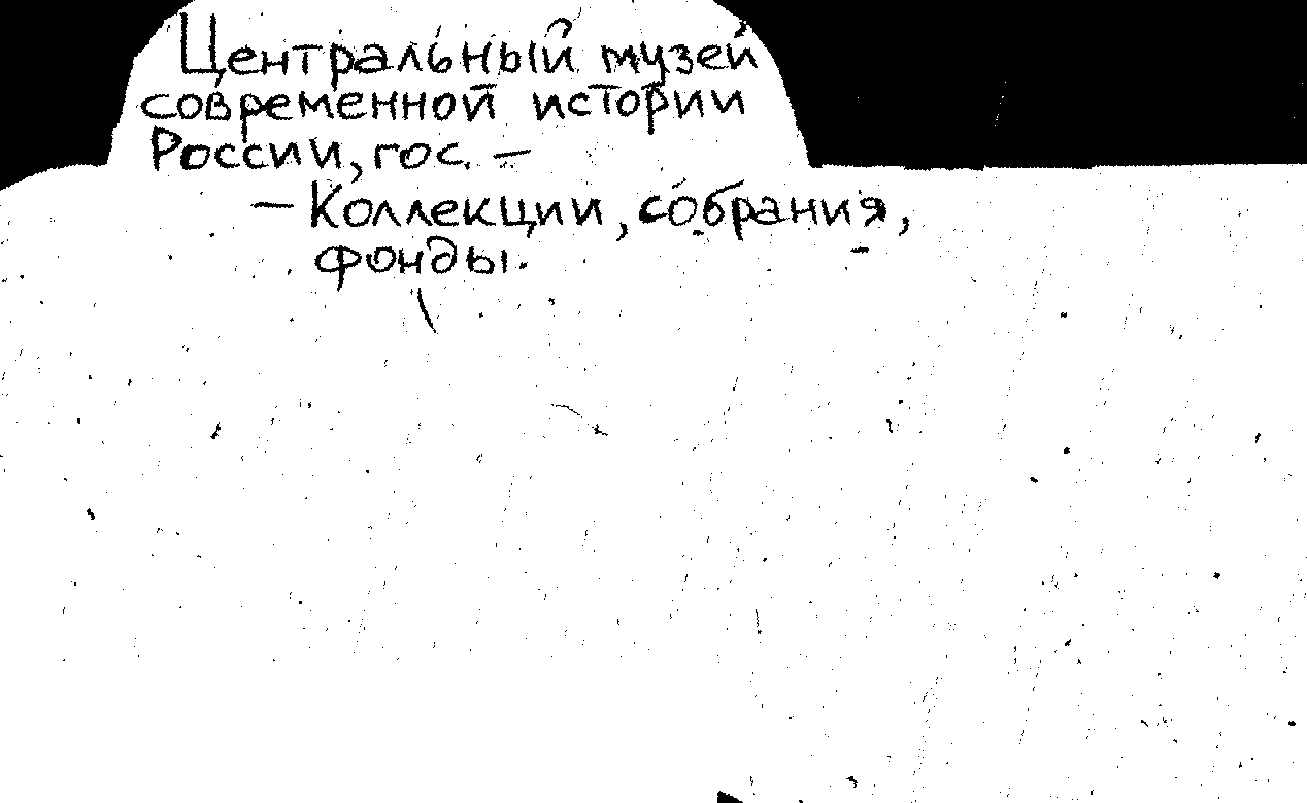 Центральный музей
современной истории
России, гос. –
– Коллекции, собрания,
фонды.